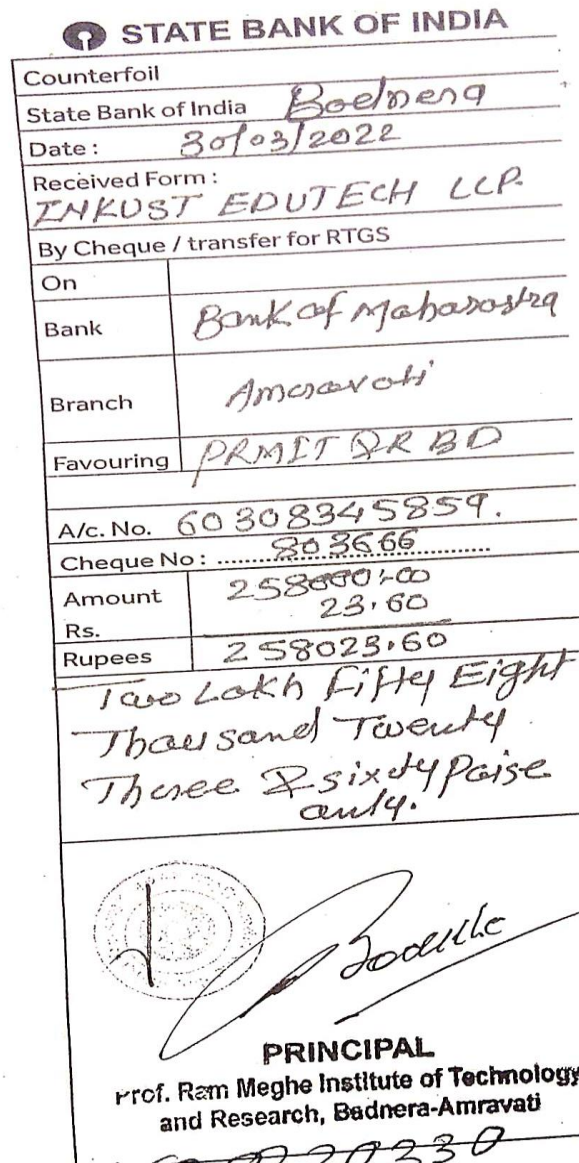 STATE BANK OF INDIA
Counterfoil
State Bank of India Badnera
Date : 30/03/2022
Received Form :
INKUST EDUTECH LLP.
By Cheque / transfer for RTGS
On
Bank Bank of Maharastra
Branch Amravati
Favouring PRMIT &R BD
A/c. No. 60308345859.
Cheque No : 803666
Amount 258000/-00
23.60
Rs.
Rupees 258023.60
Two Lakh Fifty Eight
Thousand Twenty
Three & sixty Paise
only.
PRINCIPAL
Prof. Ram Meghe Institute of Technology
and Research, Badnera-Amravati